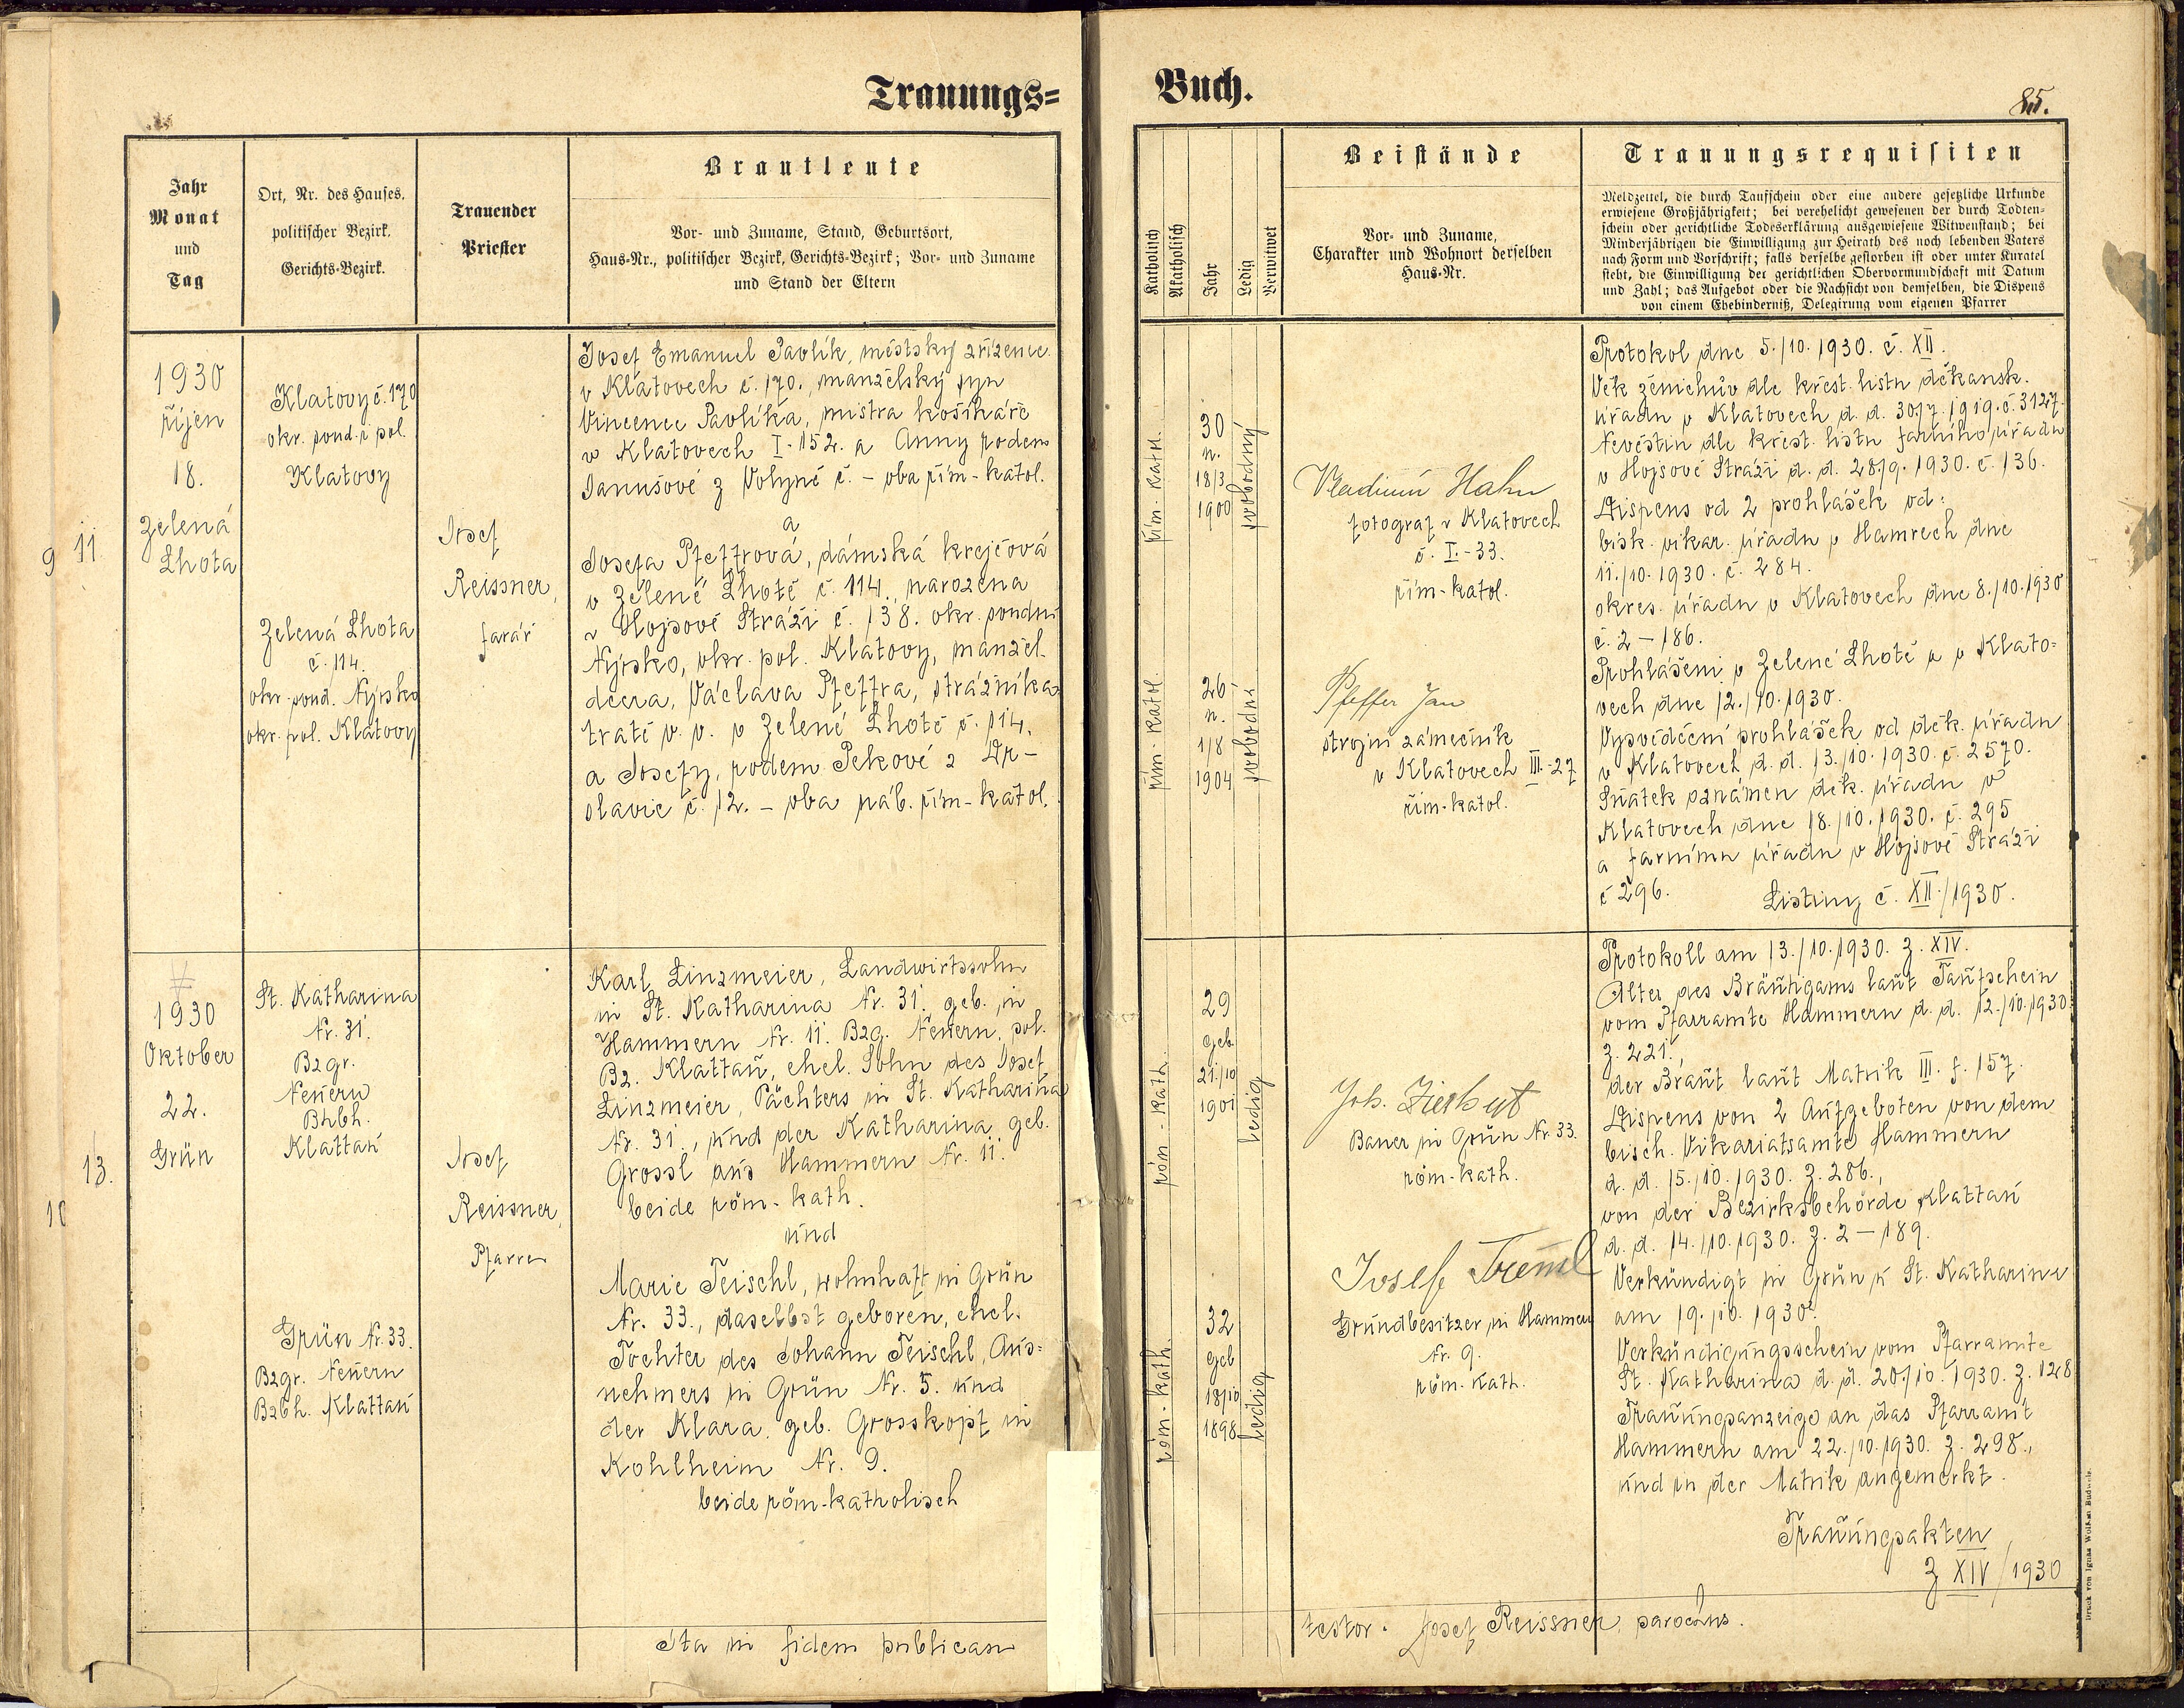 Trauungs=
Jahr
Monat
und
Tag
Ort, Nr. des Hauses.
politischer Bezirk.
Gerichts-Bezirk.
Trauender
Priester
Brautleute
Vor- und Zuname, Stand, Geburtsort,
Haus-Nr., politischer Bezirk, Gerichts-Bezirk; Vor- und Zuname
und Stand der Eltern
9 11
1930
říjen
18.
Zelená
Lhota
Klatovy č. 170
okr. soud. i pol.
Klatovy
Zelená Lhota
č. 114.
okr. soud. Nýrsko
okr. pol. Klatovy
Josef
Reissner,
farář
Josef Emanuel Pavlík, městský zřízenec
v Klatovech č. 170., manželský syn
Vincence Pavlíka, mistra košíkáře
v Klatovech I-152. a Anny rodem
Janušové z Volyně č. – oba řím-katol.
a
Josefa Pfeffrová, dámská krejčová
v Zelené Lhotě č. 114., narozena
v Hojsově Stráži č. 138. okr. soudní
Nýrsko, okr. pol. Klatovy, manžel.
dcera, Václava Pfeffra, strážníka
tratě v. v. v Zelené Lhotě č. 114.
a Josefy, rodem Pekové z Dr-
slavic č. 12. – oba náb. řím-katol.
13.
10
1930
Oktober
22.
Grün
St. Katharina
Nr. 31.
Bzgr.
Neuern
Bhbh.
Klattau
Grün Nr. 33.
Bzgr. Neuern
Bzbh. Klattau
Josef
Reissner,
Pfarrer
Karl Linzmeier, Landwirtssohn
in St. Katharina Nr. 31. geb. in
Hammern Nr. 11. Bzg. Neuern, pol.
Bz. Klattau, ehel. Sohn des Josef
Linzmeier, Pächters in St. Katharina
Nr. 31., und der Katharina geb.
Grossl aus Hammern Nr. 11.
beide röm-kath.
und
Marie Teischl, wohnhaft in Grün
Nr. 33., daselbst geboren, ehel.
Tochter des Johann Teischl, Aus=
nehmers in Grün Nr. 5. und
der Klara, geb. Grosskopf in
Kohlheim Nr. 9.
beide röm-katholisch
Ita in fidem publicam
Buch.
85.
Katholisch
Akatholisch
Jahr
Ledig
Verwitwet
Beistände
Vor- und Zuname,
Charakter und Wohnort derselben
Haus-Nr.
Trauungsrequisiten
Meldzettel, die durch Taufschein oder eine andere gesetzliche Urkunde
erwiesene Großjährigkeit; bei verehelicht gewesenen der durch Todten-
schein oder gerichtliche Todeserklärung ausgewiesene Witwenstand; bei
Minderjährigen die Einwilligung zur Heirath des noch lebenden Vaters
nach Form und Vorschrift; falls derselbe gestorben ist oder unter Kuratel
steht, die Einwilligung der gerichtlichen Obervormundschaft mit Datum
und Zahl; das Aufgebot oder die Nachsicht von demselben, die Dispens
von einem Ehehinderniß, Delegirung vom eigenen Pfarrer
řím-katol.
30
n.
18/3
1900
svobodný
řím-katol.
26
n.
1/8
1904
svobodná
Vladimír Hahn
fotograf v Klatovech
č. I.-33.
řím-katol.
Pfeffer Jan
strojní zámečník
v Klatovech III.-27
řím-katol.
Protokol dne 5./10. 1930. č. XII.
Věk ženichův dle křest. listu děkansk.
úřadu v Klatovech d. d. 30/7. 1919. č. 3127.
nevěstin dle křest. listu farního úřadu
v Hojsově Stráži d. d. 28/9. 1930. č. 136.
Dispens od 2 prohlášek od:
bisk. vikar. úřadu v Hamrech dne
11./10. 1930. č. 284.
okres. úřadu v Klatovech dne 8./10. 1930
č. 2 – 186.
Prohlášeni v Zelené Lhotě a v Klato=
vech dne 12./10. 1930.
Vysvědčení prohlášek od děk. úřadu
v Klatovech d. d. 13./10. 1930. č. 2570.
Sňatek oznámen děk. úřadu v
Klatovech dne 18./10. 1930. č. 295
a farnímu úřadu v Hojsově Stráži
č 296.
Listiny č. XII./1930.
röm-kath.
29
geb.
21./10
1901
ledig
röm-kath.
32
geb
18/10
1898
ledig
Joh. Zierhut
Bauer in Grün Nr. 33.
röm-kath.
Josef Treml
Grundbesitzer in Hammern
Nr. 9.
röm-kath.
Protokoll am 13./10. 1930. Z. XIV.
Alter des Bräutigams laut Taufschein
vom Pfarramte Hammern d. d. 12./10. 1930
Z. 221.,
der Braut laut Matrik III. f. 157.
Dispens von 2 Aufgeboten von dem
bisch. Vikariatsamte Hammern
d. d. 15./10. 1930. Z. 286.,
von der Bezirksbehörde Klattau
d. d. 14./10. 1930. Z. 2 – 189.
Verkündigt in Grün u. St. Katharina
am 19./10. 1930.
Verkündigungsschein vom Pfarramte
St. Katharina d. d. 20./10. 1930. Z. 128
Trauungsanzeige an das Pfarramt
Hammern am 22./10. 1930. Z. 298.,
und in der Matrik angemerkt.
Trauungsakten
Z XIV/1930
testor. Josef Reissner, parochus.
Druck von Ignaz Wolf in Budweis.